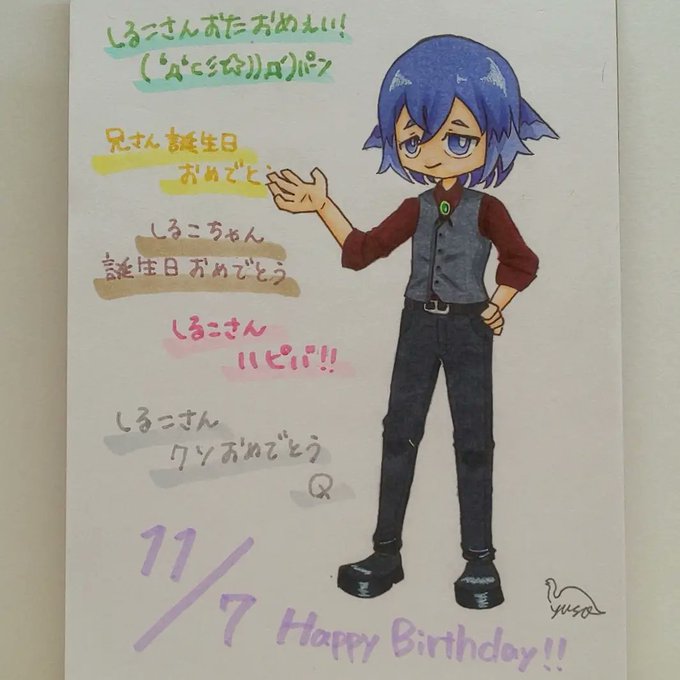 しるこさんおたおめぇい!
兄さん誕生日
おめでとう
しるこちゃん
誕生日おめでとう
しるこさん
ハピバ!!
しるこさん
クソおめでとう
Q
11/7 Happy Birthday!!
yuso